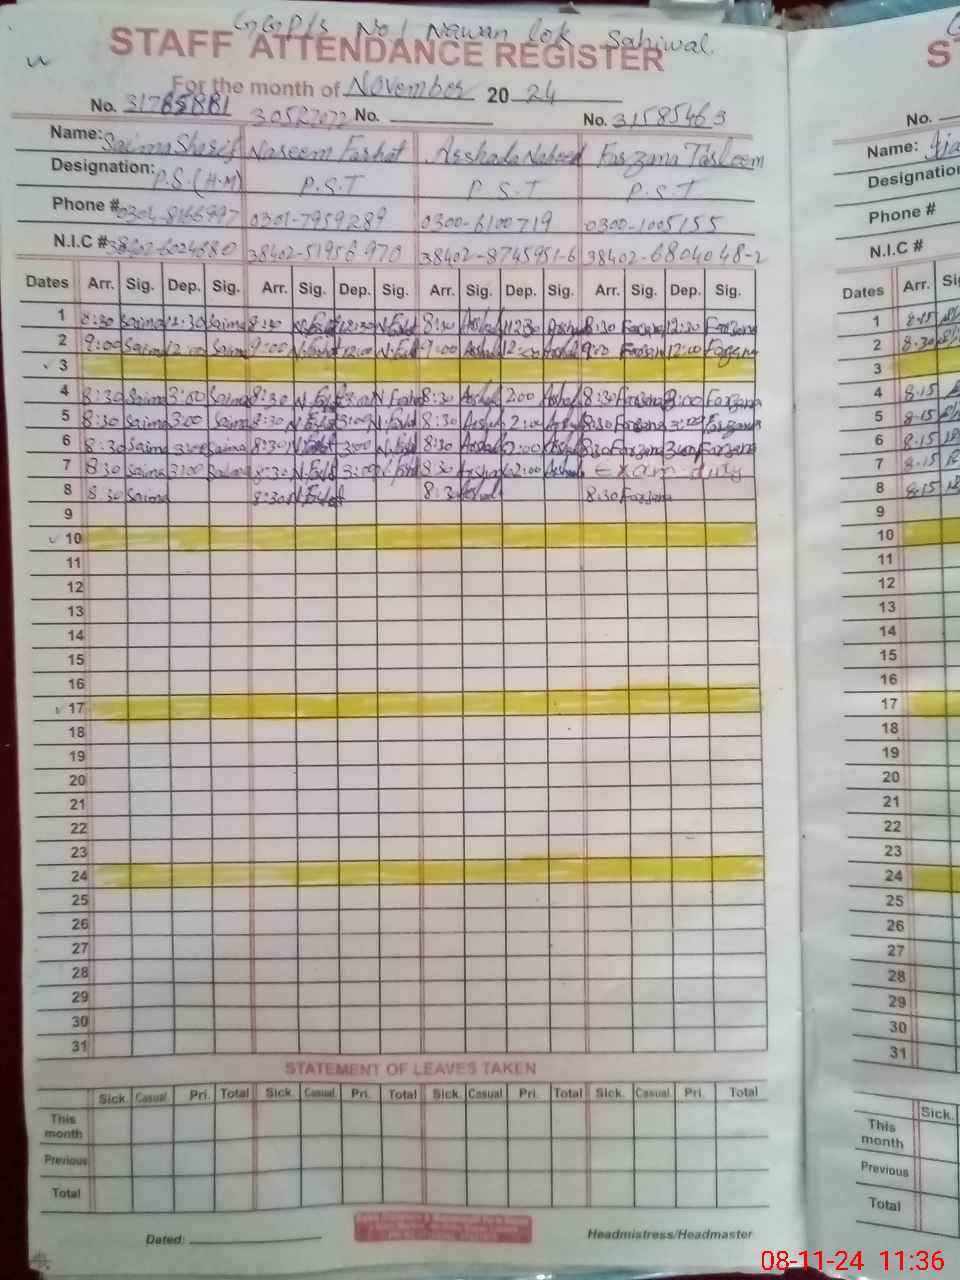 GGP/S No.1 Nawan lok Sahiwal.
STAFF ATTENDANCE REGISTER
For the month of November 20 24
No. 31785881 30527072 No. No. 31585463
Name: Saima Sharif Naseem Farhat Arshada Naheed Farzana Tasleem
Designation: P.S.(H.M) P.S.T P.S.T P.S.T
Phone # 0301-7959289 0300-6100719 0300-1005155
N.I.C # 38402-51956970 38402-8745951-6 38402-6804048-2
Dates Arr. Sig. Dep. Sig. Arr. Sig. Dep. Sig. Arr. Sig. Dep. Sig. Arr. Sig. Dep. Sig.
1 8:30 Saima 12:30 Saima 8:30 12:30 8:30 12:30 8:30 Farzana 12:30 Farzana
2 9:00 Saima 12:00 Saima 9:00 12:00 9:00 12:00 9:00 Farzana 12:00 Farzana
3
4 8:30 Saima 3:00 Saima 8:30 3:00 8:30 2:00 8:30 Farzana 3:00 Farzana
5 8:30 Saima 3:00 Saima 8:30 3:00 8:30 2:00 8:30 Farzana 3:00 Farzana
6 8:30 Saima 3:00 Saima 8:30 3:00 8:30 2:00 8:30 Farzana 3:00 Farzana
7 8:30 Saima 3:00 Saima 8:30 3:00 8:30 2:00 Exam duty
8 8:30 Saima 8:30 8:30 8:30 Farzana
9
10
11
12
13
14
15
16
17
18
19
20
21
22
23
24
25
26
27
28
29
30
31
STATEMENT OF LEAVES TAKEN
Sick. Casual Pri. Total Sick. Casual Pri. Total Sick. Casual Pri. Total Sick. Casual Pri. Total
This month
Previous
Total
Dated: Headmistress/Headmaster
No.
Name:
Designation
Phone #
N.I.C #
Dates Arr.
1 8:15
2 8:30
3
4 8:15
5 8:15
6 8:15
7 8:15
8 8:15
9
10
11
12
13
14
15
16
17
18
19
20
21
22
23
24
25
26
27
28
29
30
31
Sick.
This month
Previous
Total
08-11-24 11:36